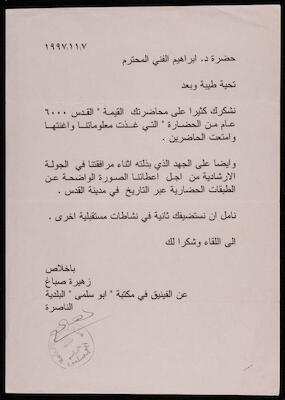 ١٩٩٧,١١,٧
حضرة د. ابراهيم الفني المحترم
تحية طيبة وبعد
نشكرك كثيرا على محاضرتك القيمة " القدس ٦٠٠٠
عام من الحضارة " التي غذت معلوماتنا واغنتها
وامتعت الحاضرين .
وايضا على الجهد الذي بذلته اثناء مرافقتنا في الجولة
الارشادية من اجل اعطائنا الصورة الواضحة عن
الطبقات الحضارية عبر التاريخ في مدينة القدس .
نامل ان نستضيفك ثانية في نشاطات مستقبلية اخرى .
الى اللقاء وشكرا لك
باخلاص
زهيرة صباغ
عن الفينيق في مكتبة " ابو سلمى " البلدية
الناصرة